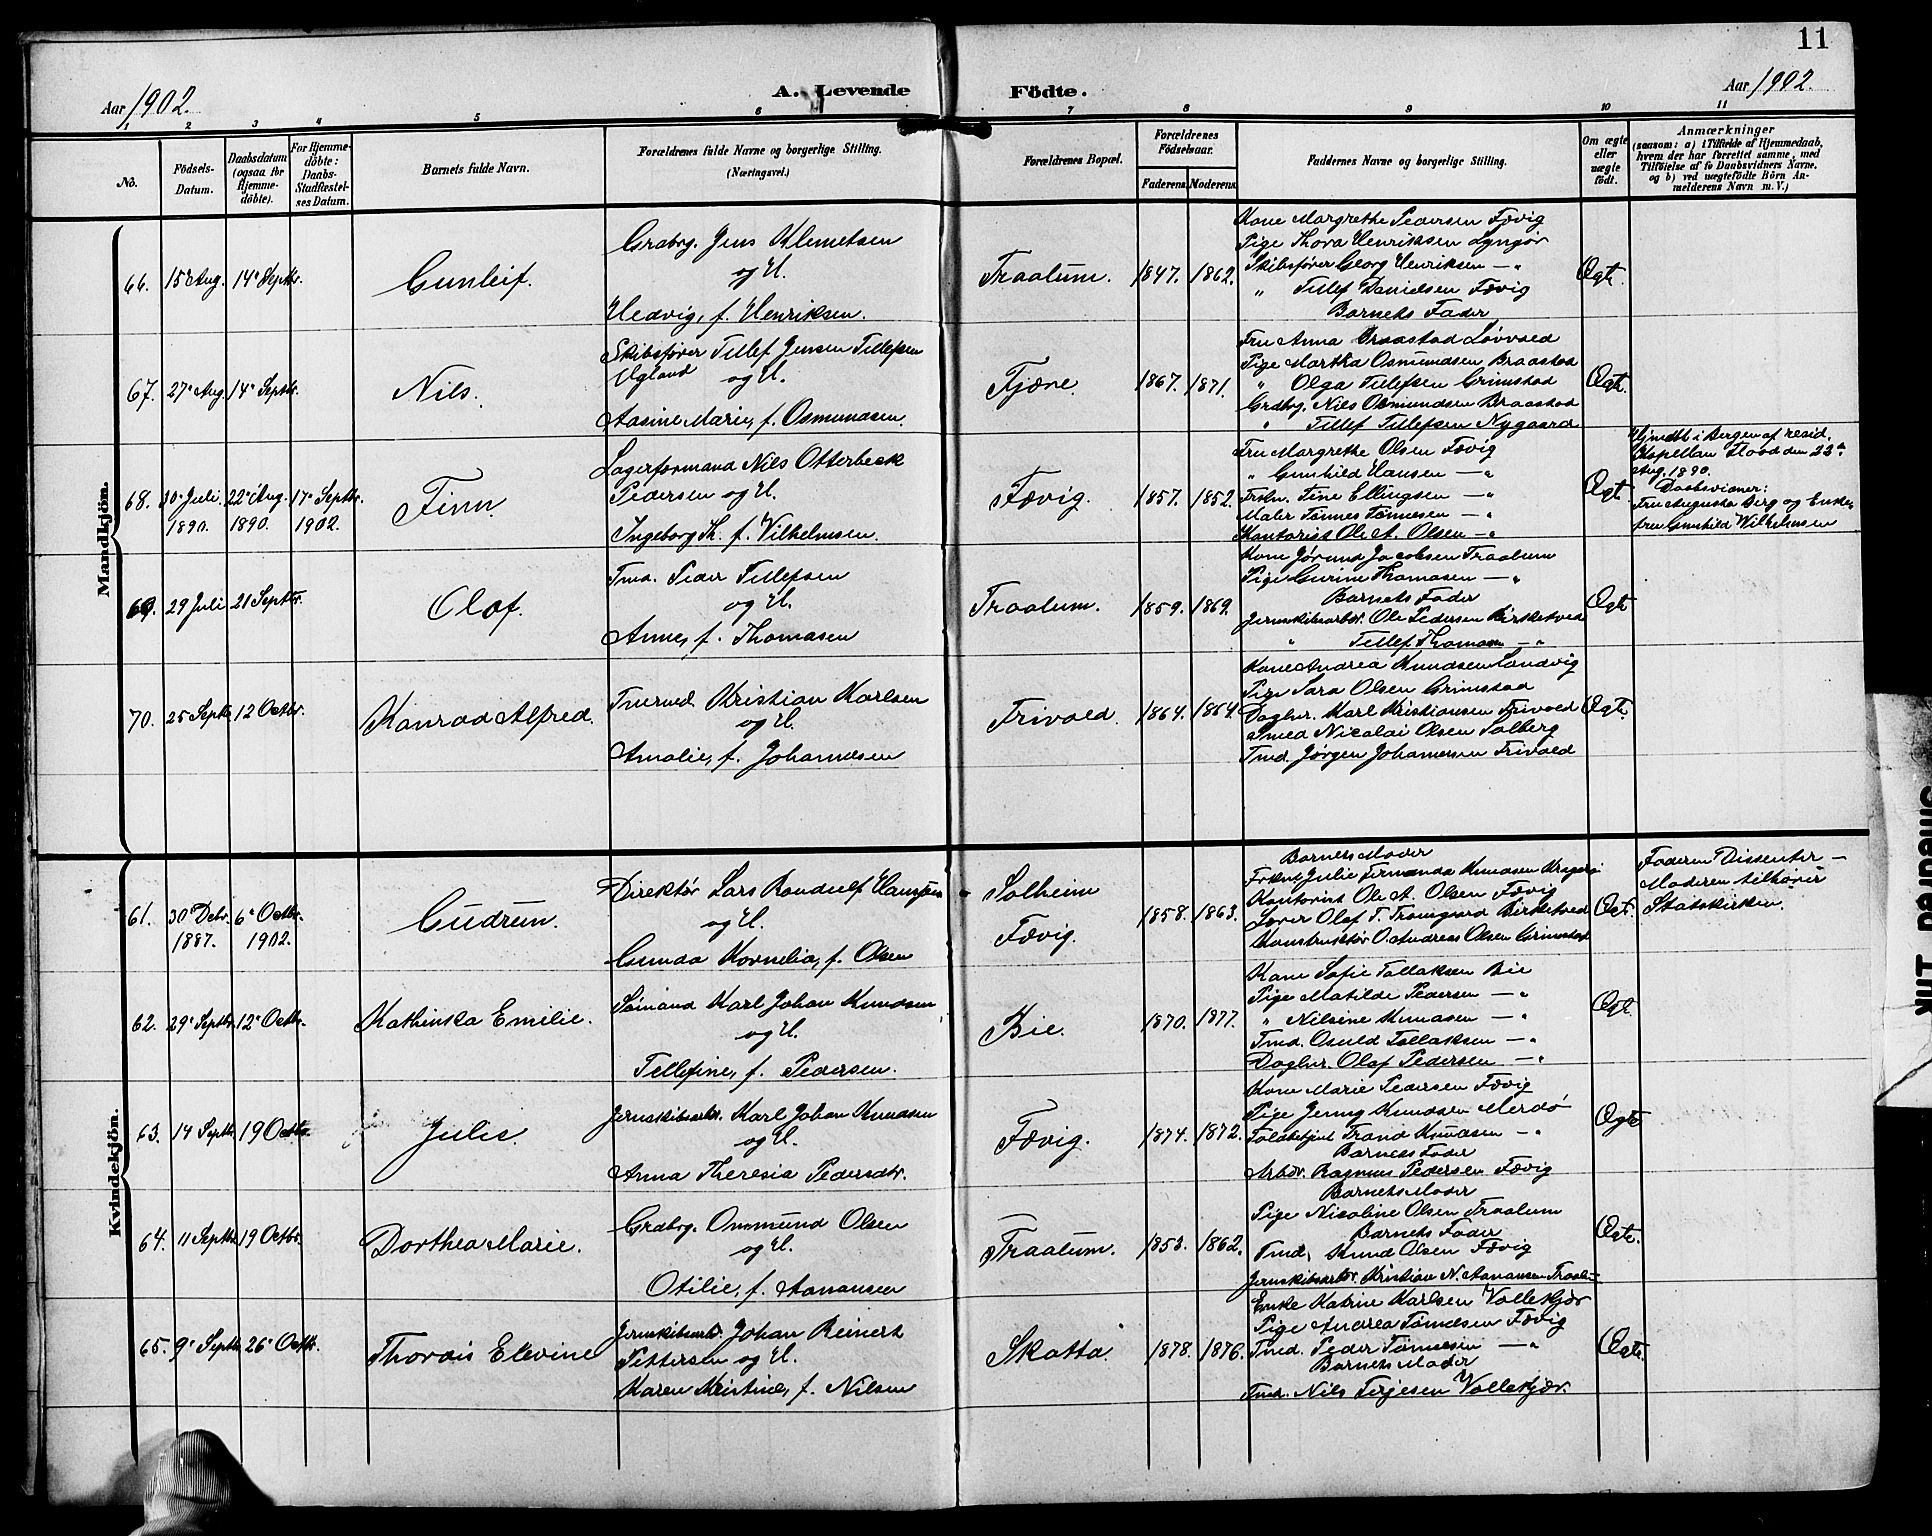 11
Aar 1902.
A. Levende Födte.
Aar 1902.
1 2 3 4 5 6 7 8 9 10 11
No.
Födsels-Datum.
Daabsdatum (ogsaa for Hjemme-döbte).
For Hjemme-döbte: Daabs-Stadfæstel-ses Datum.
Barnets fulde Navn.
Forældrenes fulde Navne og borgerlige Stilling. (Næringsvei.)
Forældrenes Bopæl.
Forældrenes Födselsaar.
Faderens. Moderens.
Faddernes Navne og borgerlige Stilling.
Om ægte eller uægte födt.
Anmærkninger
(saasom: a) i Tilfælde af Hjemmedaab, hvem der har forrettet samme, med Tilföielse af to Daabsvidners Navne, og b) ved uægtefödte Börn An-melderens Navn m. V.)
Mandkjön.
66. 15 Aug. 14 Septbr.
Gunleif.
Graabrg. Jens Klemetsen
og H.
Hedvig, f. Henriksen.
Traalum. 1847. 1862.
Kone Margrethe Pedersen Fævig
Pige Thora Henriksen Lyngør
Skibsfører Georg Henriksen — „
„ Tellef Danielsen Fævig
Barnets Fader
Ægte.
67. 27 Aug. 14 Septbr.
Nils.
Skibsfører Tellef Jensen Tellefsen
Ugland og H.
Aasine Marie, f. Osmundsen.
Fjære. 1867. 1871.
Fru Anna Braastad Løvvold
Pige Martha Osmundsen Braastad
„ Olga Tellefsen Grimstad
Grabrg. Nils Osmundsen Braastad
„ Tellef Tellefsen Nygaard
Ægte.
68. 30 Juli 1890. 22 Aug. 1890. 17 Septbr. 1902.
Finn.
Lagerformand Nils Otterbeck
Pedersen og H.
Ingeborg Th. f. Vilhelmsen.
Fævig. 1857. 1852.
Fru Margrethe Olsen Fævig
„ Gunhild Hansen — „
Frkn. Tine Ellingsen — „
Maler Tønnes Tønnesen — „
Kontorist Ole A. Olsen — „
Ægte.
Hjmdbt i Bergen af resid.
Kapellan Flood den 22
Aug. 1890.
Daabsvidner:
Fru Augusta Berg og Enke-
fru Gunhild Wilhelmsen
69. 29 Juli 21 Septbr.
Olaf.
Tmd. Peder Tellefsen
og H.
Anne, f. Thomasen
Traalum. 1859. 1869.
Kone Jørund Jacobsen Traalum
Pige Gurine Thomasen — „
Barnets Fader
Jernskibsarbr. Ole Pedersen Birketved
„ Tellef Thomasen — „
Ægte
70. 25 Septbr. 12 Octbr.
Konrad Alfred.
Tmrmd Kristian Karlsen
og H.
Amalie, f. Johannesen
Frivold. 1864. 1864.
Kone Andrea Knudsen Sandvig
Pige Sara Olsen Grimstad
Dagbr. Karl Kristiansen Frivold
Smed Nicolai Olsen Solberg
Tmd. Jørgen Johannesen Frivold
Ægte.
Kvindekjön.
61. 30 Decbr. 1887. 6 Octbr. 1902.
Gudrun.
Direktør Lars Randulf Hansen
og H.
Gunda Kornelia, f. Olsen
Solheim
Fævig. 1858. 1863.
Barnets Moder
Frkn. Julie Fernanda Knudsen Kragerø
Kontorist Ole A. Olsen Fævig
Lærer Olaf T. Tromgaard Birketved
Konstruktør O. Andreas Olsen Grimstad
Ægt.
Faderen Dissenter —
Moderen tilhører
Statskirken.
62. 29 Septbr. 12 Octbr.
Kathinka Emilie.
Sømand Karl Johan Knudsen
og H.
Tellefine, f. Pedersen.
Bie. 1870. 1877.
Kone Sofie Tallaksen Bie
Pige Matilde Pedersen — „
„ Nilsine Knudsen — „
Tmd. Osuld Tallaksen — „
Dagbr. Olaf Pedersen — „
Ægt.
63. 14 Septbr. 19 Octbr.
Julie.
Jernskibsarbr. Karl Johan Knudsen
og H.
Anna Theresia Pedersdtr.
Fævig. 1874. 1872.
Kone Marie Pedersen Fævig
Pige Jenny Knudsen Merdø
Toldbetjent Trand Knudsen — „
Barnets Fader
Arbdr. Rasmus Pedersen Fævig
Ægte
64. 11 Septbr. 19 Octbr.
Dorthea Marie.
Grabrg. Ommund Olsen
og H.
Otilie, f. Aanansen
Traalum. 1853. 1862.
Barnets Moder
Pige Nicoline Olsen Traalum
Barnets Fader
Tmd. Knud Olsen Fævig
Jernskibsarbr. Kristian N. Aanansen Traal–
Ægte.
65. 9 Septbr. 26 Octbr.
Thordis Elevine
Jernskibsarb. Johan Reinert
Pettersen og H.
Karen Kristine, f. Nilsen
Skatta. 1878. 1876.
Enke Katrine Karlsen Vollekjær
Pige Andrea Tønnesen Fævig
Tmd. Peder Tønnesen — „
Barnets Moder
Tmd. Nils Terjesen Vollekjær.
Ægte.